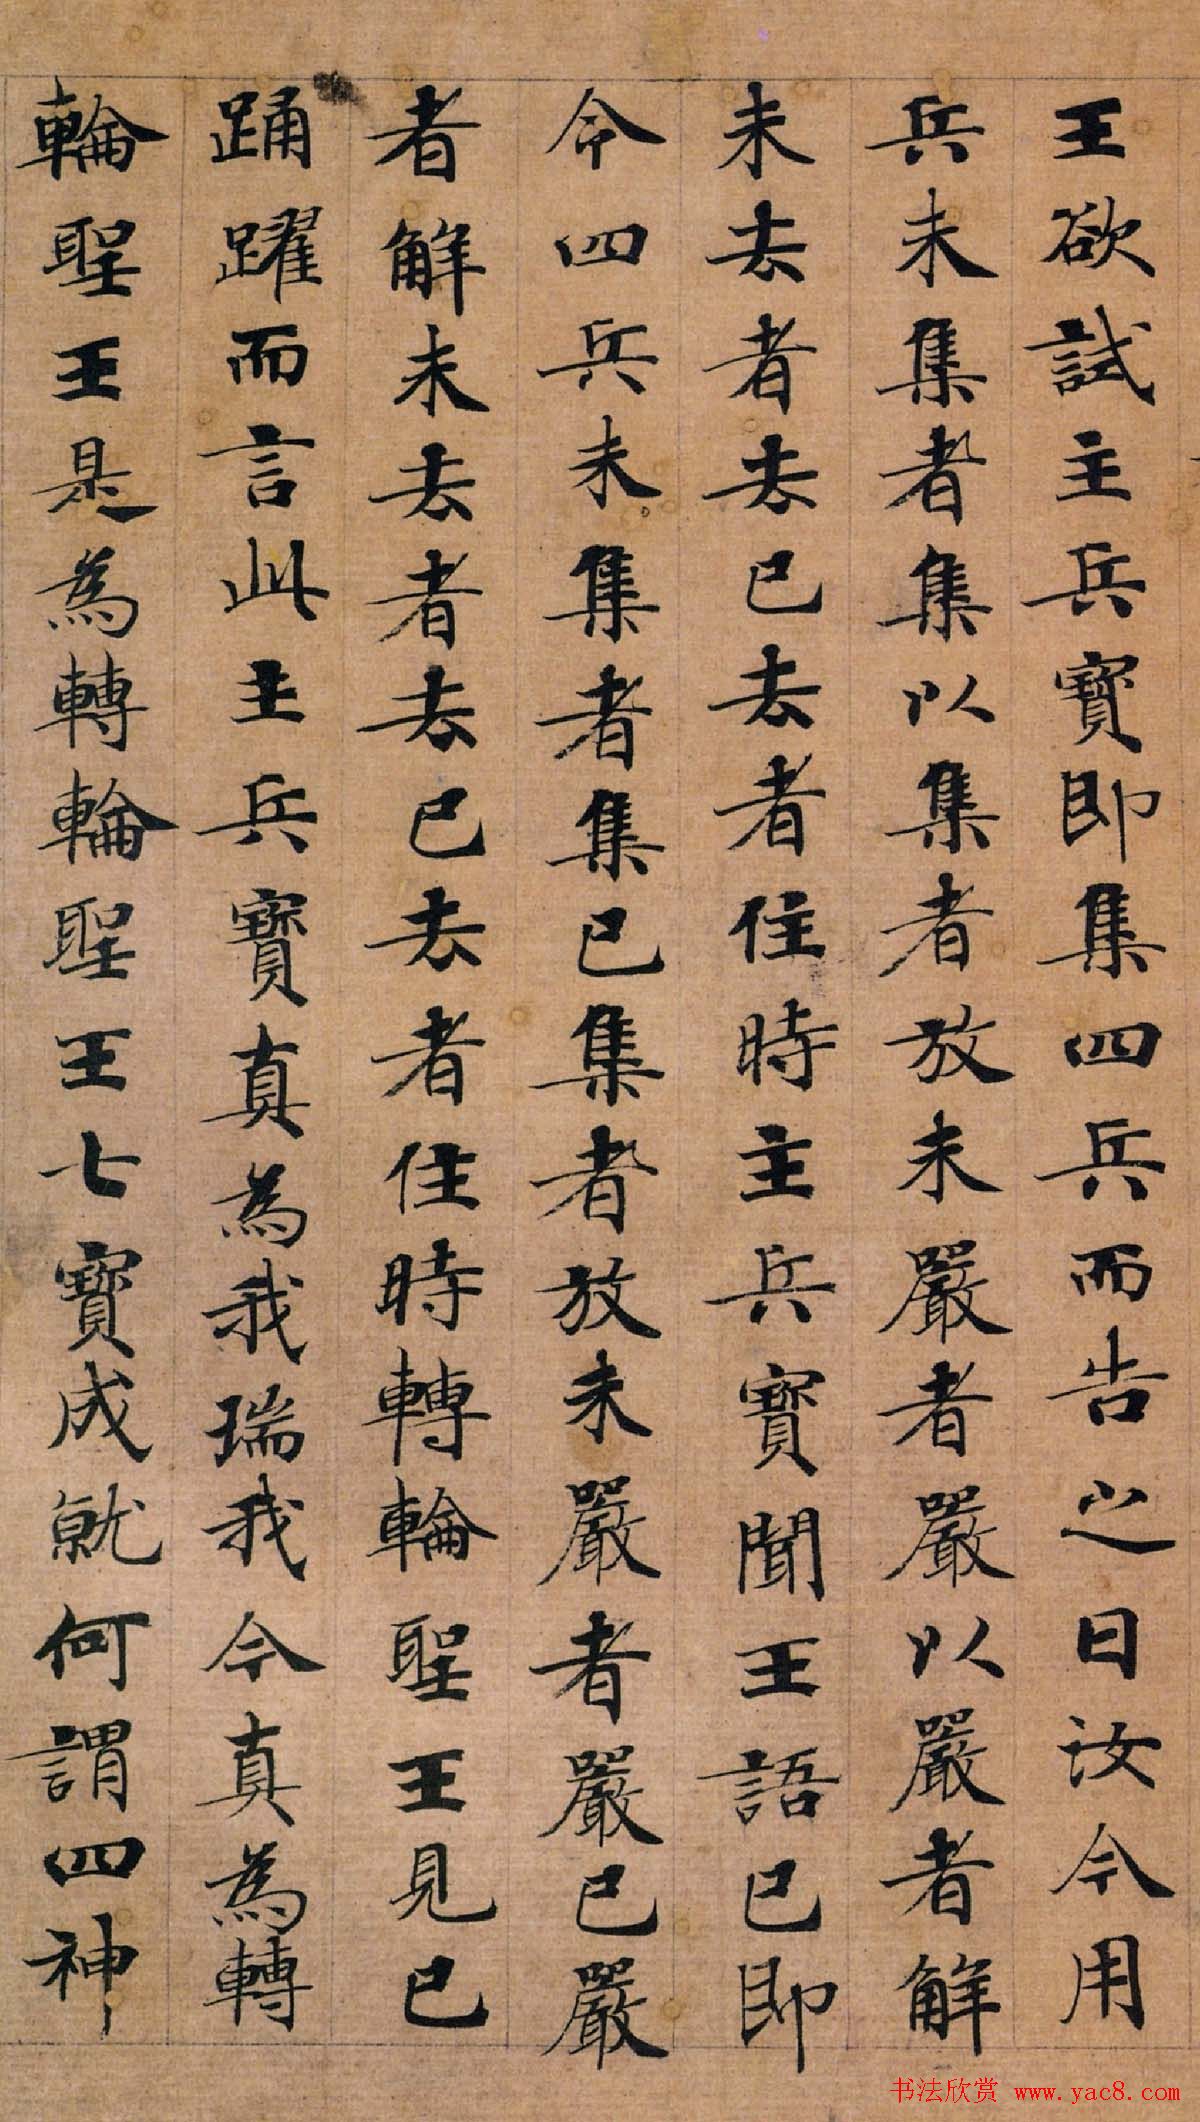 王欲試主兵寶即集四兵而告之曰汝今用
兵未集者集以集者放未嚴者嚴以嚴者解
未去者去已去者住時主兵寶聞王語已即
令四兵未集者集已集者放未嚴者嚴已嚴
者解未去者去已去者住時轉輪聖王見已
踊躍而言此主兵寶真為我瑞我今真為轉
輪聖王是為轉輪聖王七寶成就何謂四神
书法欣赏 www.yac8.com